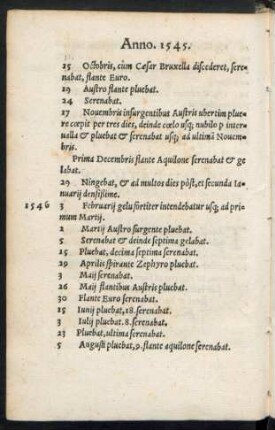 Anno. 1545.
15 Octobris, cùm Cæsar Bruxella discederet, sere-
nabat, flante Euro.
19 Austro flante pluebat.
24 Serenabat.
17 Nouembris insurgentibus Austris ubertim plue-
re cœpit per tres dies, deinde cœlo usq; nubilo p inter-
ualla & pluebat & serenabat usq; ad ultimā Nouem-
bris.
Prima Decembris flante Aquilone serenabat & ge
labat.
29 Ningebat, & ad multos dies pòst, et secunda Ia-
nuarij densissime.
1546 3 Februarij gelu fortiter intendebatur usq; ad pri-
mum Martij.
2 Martij Austro surgente pluebat.
5 Serenabat & deinde septima gelabat.
15 Pluebat, decima septima serenabat.
29 Aprilis spirante Zephyro pluebat.
3 Maij serenabat.
26 Maij flantibus Austris pluebat.
30 Flante Euro serenabat.
15 Iunij pluebat, 18. serenabat.
3 Iulij pluebat. 8. serenabat.
23 Pluebat, ultima serenabat.
5 Augusti pluebat, 9. flante aquilone serenabat.